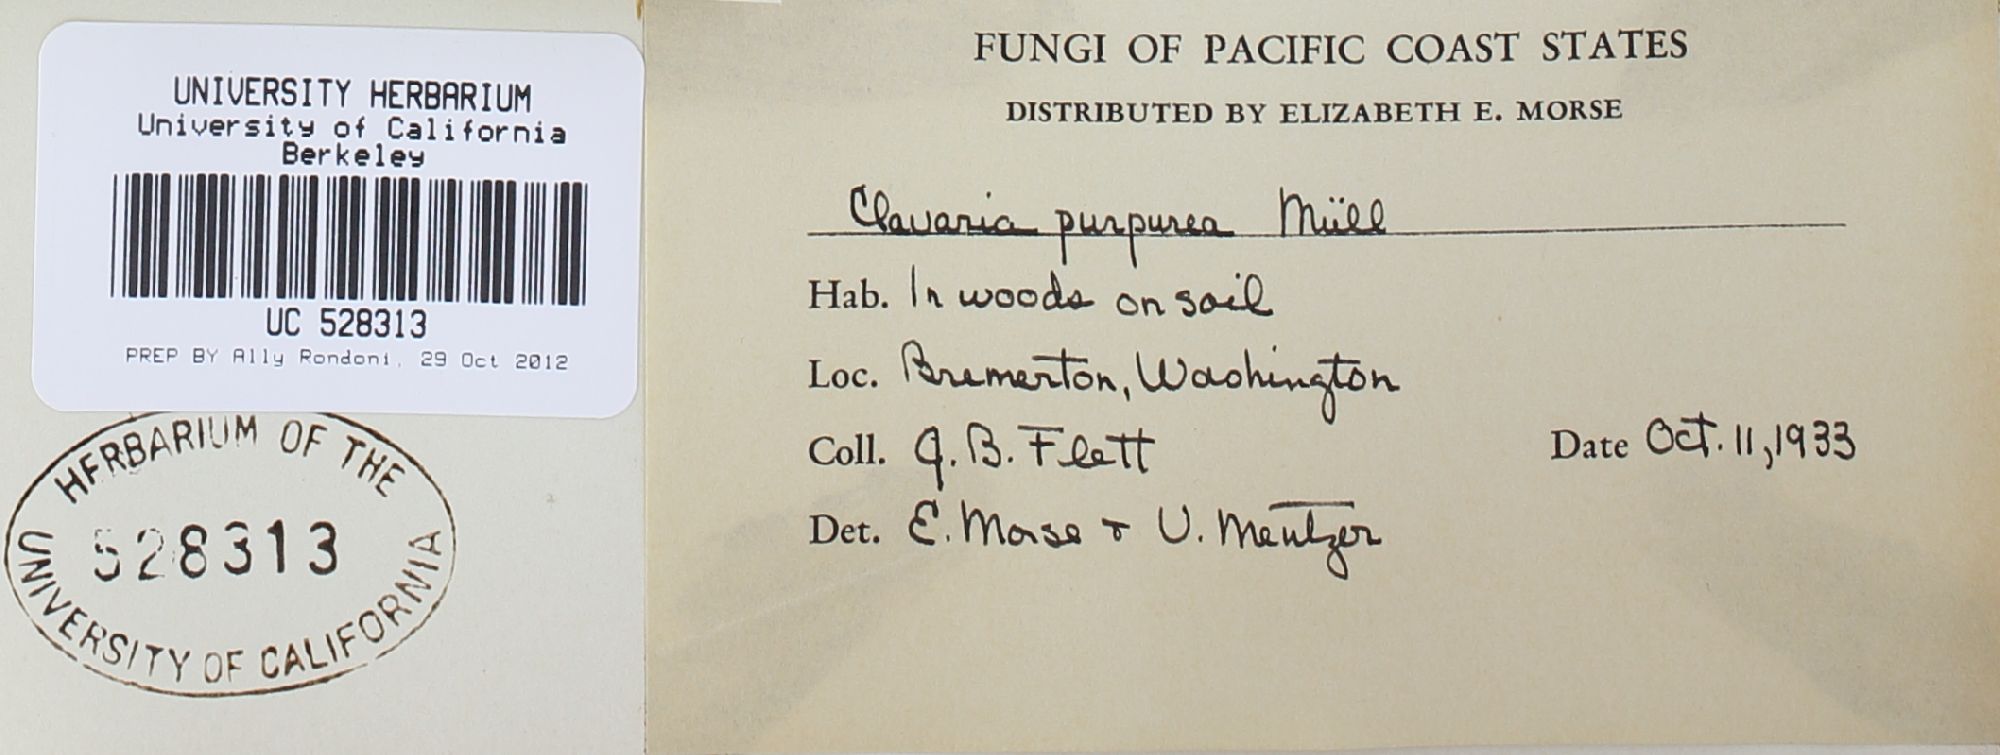 UNIVERSITY HERBARIUM
University of California
Berkeley
UC 528313
PREP BY Ally Rondoni, 29 Oct 2012
HERBARIUM OF THE
528313
UNIVERSITY OF CALIFORNIA
FUNGI OF PACIFIC COAST STATES
DISTRIBUTED BY ELIZABETH E. MORSE
Clavaria purpurea Müll
Hab. In woods on soil
Loc. Bremerton, Washington
Coll. J. B. Flett Date Oct. 11, 1933
Det. E. Morse + V. Mentzer